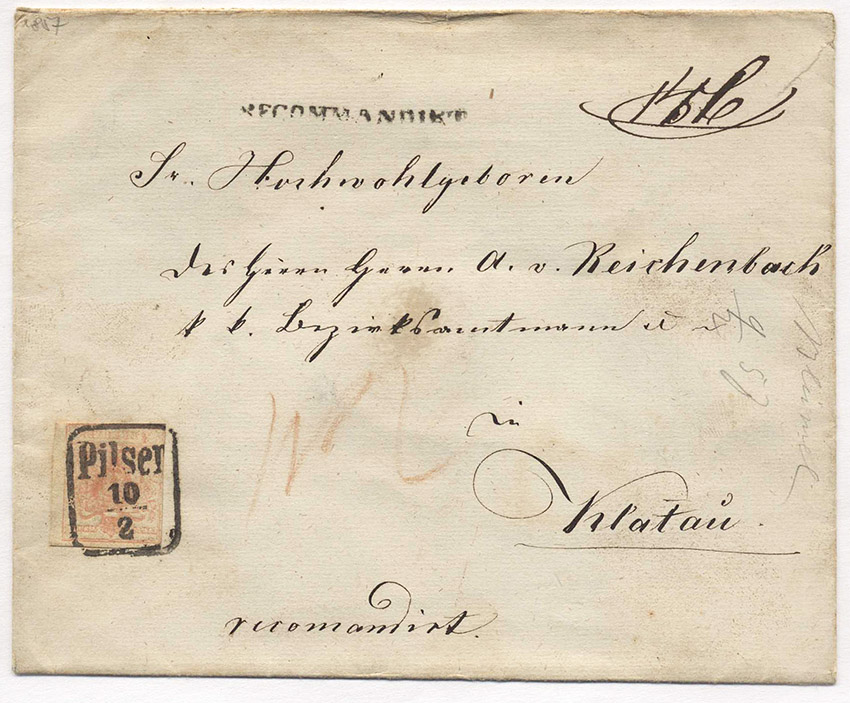 1857
RECOMMANDIRT
Sr. Hochwohlgeboren
des Herrn Herrn A. v. Reichenbach
k k. Bezirksamtmann
in
Klatau.
Pilsen
10
2
recomandirt.